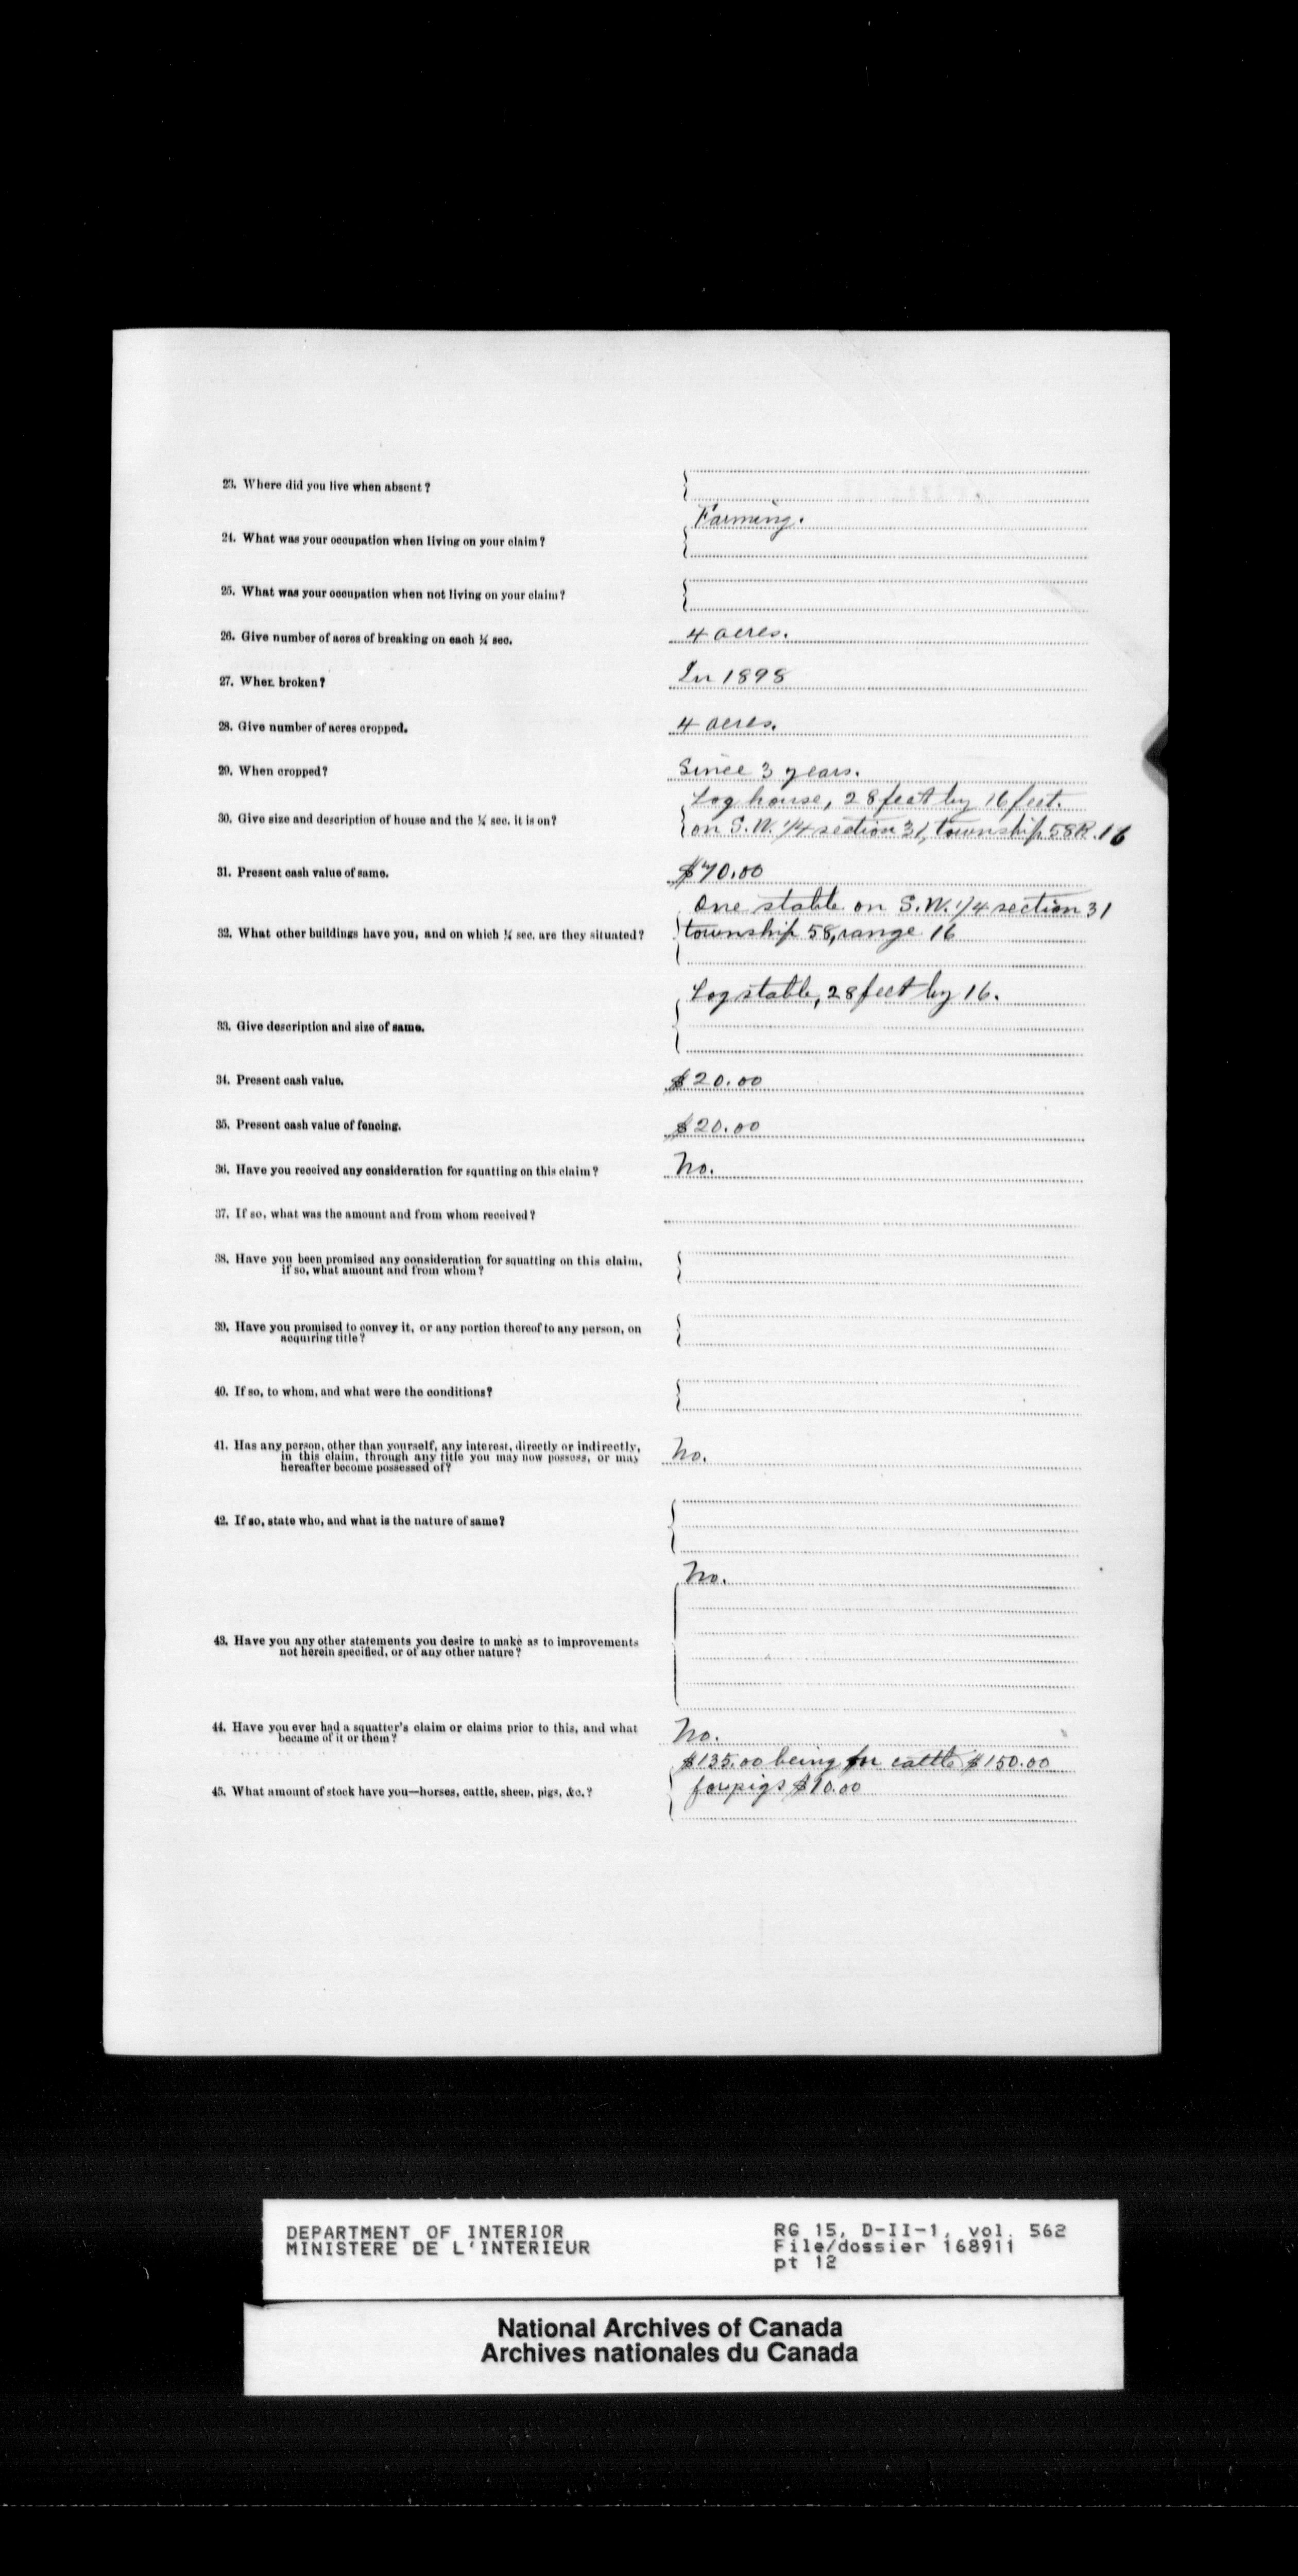 23. Where did you live when absent?
Farming.
24. What was your occupation when living on your claim?
25. What was your occupation when not living on your claim?
26. Give number of acres of breaking on each ¼ sec.
4 acres.
27. When broken?
In 1898
28. Give number of acres cropped.
4 acres.
29. When cropped?
Since 3 years.
30. Give size and description of house and the ¼ sec. it is on?
Log house, 28 feet by 16 feet.
on S.W. 1/4 section 31, township 58 R. 16
31. Present cash value of same.
$70.00
One stable on S.W. 1/4 section 31
32. What other buildings have you, and on which ¼ sec. are they situated?
township 58, range 16
Log stable, 28 feet by 16.
33. Give description and size of same.
34. Present cash value.
$20.00
35. Present cash value of fencing.
$20.00
36. Have you received any consideration for squatting on this claim?
No.
37. If so, what was the amount and from whom received?
38. Have you been promised any consideration for squatting on this claim,
if so, what amount and from whom?
39. Have you promised to convey it, or any portion thereof to any person, on
acquiring title?
40. If so, to whom, and what were the conditions?
41. Has any person, other than yourself, any interest, directly or indirectly,
in this claim, through any title you may now possess, or may
hereafter become possessed of?
No.
42. If so, state who, and what is the nature of same?
No.
43. Have you any other statements you desire to make as to improvements
not herein specified, or of any other nature?
44. Have you ever had a squatter's claim or claims prior to this, and what
became of it or them?
No.
$135.00 being for cattle $150.00
45. What amount of stock have you—horses, cattle, sheep, pigs, &c.?
for pigs $10.00
DEPARTMENT OF INTERIOR
MINISTERE DE L'INTERIEUR
RG 15, D-II-1, vol. 562
File/dossier 168911
pt 12
National Archives of Canada
Archives nationales du Canada